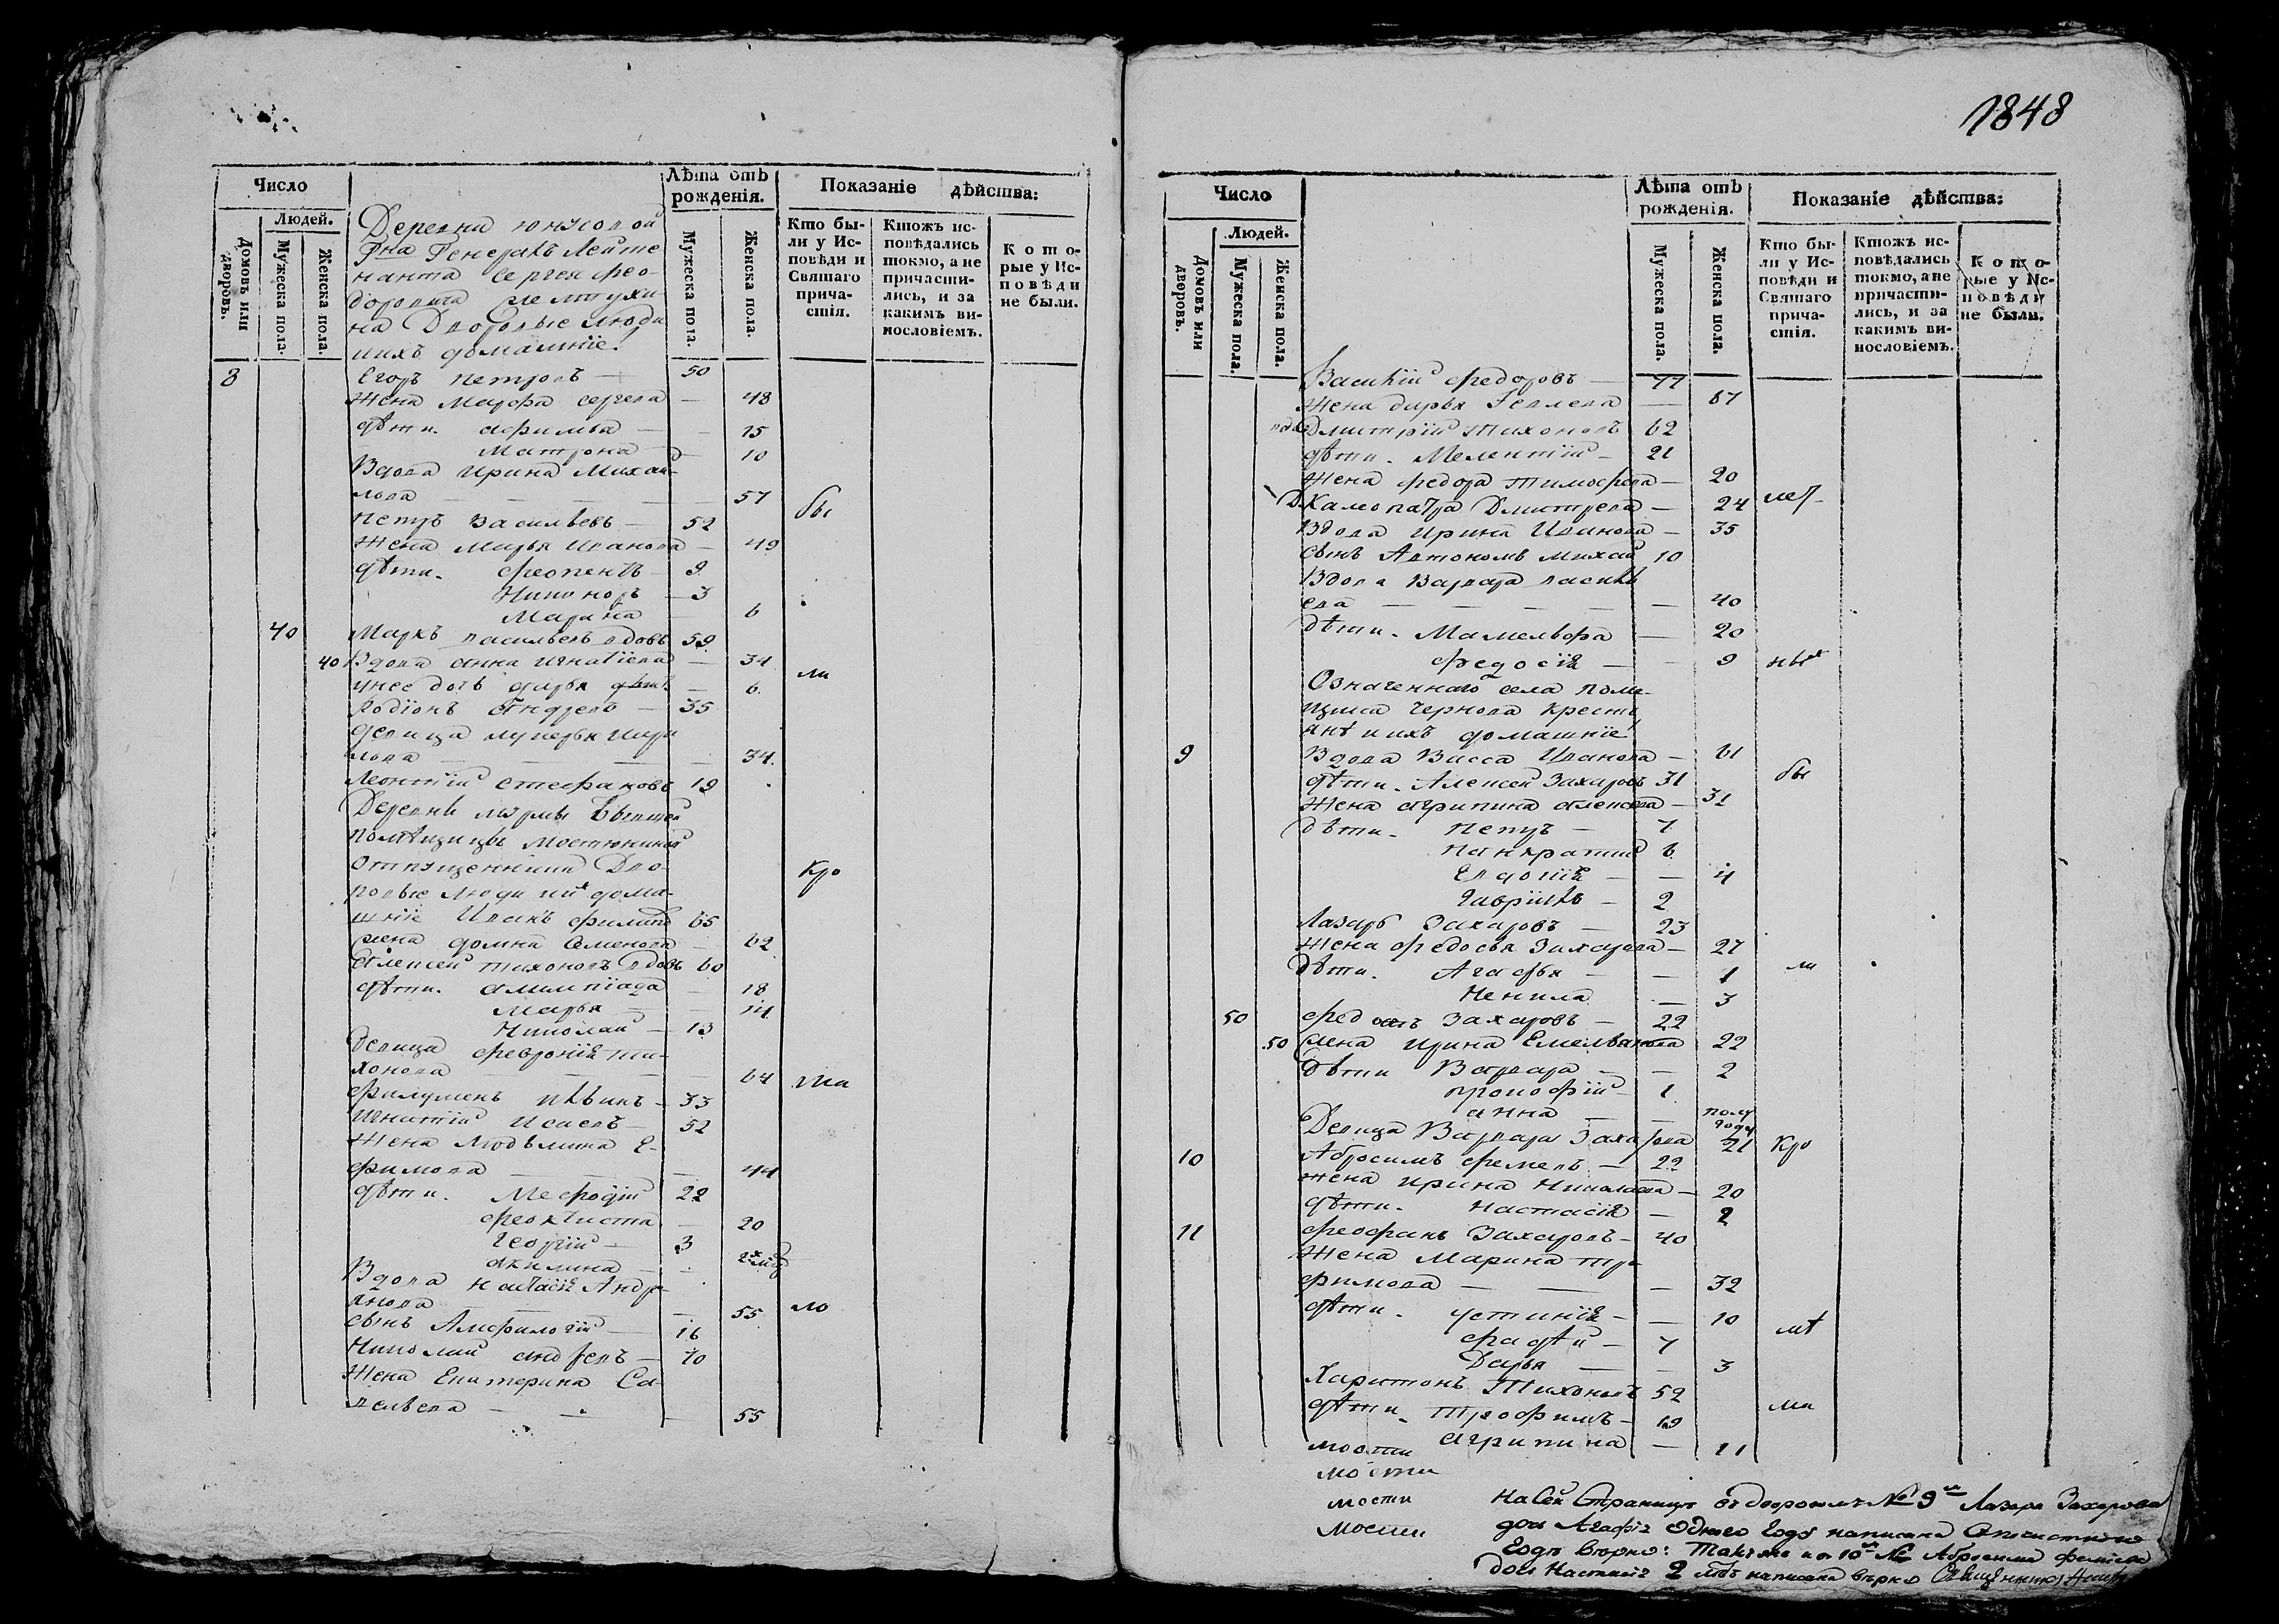 1848
Число
Людей.
Домовъ или дворовъ.
Мужеска пола.
Женска пола.
Лѣта отъ рожденія.
Мужеска пола.
Женска пола.
Показаніе дѣйства:
Кто бы-
ли у Ис-
повѣди и
Святаго
прича-
стія.
Ктожъ ис-
повѣдались
токмо, а не
причасти-
лись, и за
какимъ ви-
нословіемъ.
Кото-
рые у Ис-
повѣди
не были.
Деревни
Гна Генералъ Лейте
нанта Сергея Фео-
доровича
на Дворовые люди
иихъ домашніе
8 Егоръ Петровъ — 50
Жена Марфа Сергева — 48
дѣти. Афимья — 15
Матрона — 10
Вдова Ирина Михаи-
лова — 57 бы
Петръ Васильевъ — 52
Жена Марья Иванова — 49
дѣти. Феопентъ — 9
Никоноръ — 3
Марина — 6
40 Маркъ Васильевъ вдовъ 59
40 Вдова Анна Игнатіева — 34 ли
унее дочь Дарья 6
Родіонъ Андревъ — 35
Девица Лукерья
лова — 34
Леонтій Стефановъ 19
Деревни
помѣщицы
отпущенніи Дво-
ровые люди дома- кро
шніе Иванъ Филипо 65
жена Домна Семенова 62
Алексеи Тихоновъ вдовъ 60
дѣти. Алимпіада — 18
Марья — 14
Николаи — 13
Девица Февронія Ти-
хонова — 64
Филуменъ — 33
Игнатіи Исаевъ — 52
Жена Людьмила Е-
фимова — 44
дѣти. Мефодіи 22
Феоктиста — 20
Георгіи — 3
Акилина —
Вдова Настасія Андр
янова — 55
сынъ Амфилогіи — 16
Николаи Андревъ — 70
Жена Екатерина Са-
вельева — 55
Число
Людей.
Домовъ или дворовъ.
Мужеска пола.
Женска пола.
Лѣта отъ рожденія.
Мужеска пола.
Женска пола.
Показаніе дѣйства:
Кто бы-
ли у Ис-
повѣди и
Святаго
прича-
стія.
Ктожъ ис-
повѣдались
токмо, а не
причасти-
лись, и за
какимъ ви-
нословіемъ.
Кото-
рые у Ис-
повѣди
не были.
Василіи Федоровъ — 77
Жена Дарья — 67
Дмитріи Тихоновъ 62
дѣти. Мелентіи — 21
Жена Федора Тимофева — 20
Клеопатра Дмитрева — 24
Вдова Ирина Иванова — 35
сынъ Автономъ Михаи 10
Вдова Варвара Василь
ева — 40
дѣти. — 20
Федосія — 9 ных
Означеннаго села поме-
щика Чернова Крестья
янѣ иихъ домашніе
9 Вдова Васса Иванова — 61
дѣти. Алексеи Захаровъ 31 бы
Жена Агрипина Алексева — 31
дѣти. Петръ — 7
Панкратіи 6
Евдокія — 4
Гавріилъ — 2
Лазарь Захаровъ — 23
Жена Федосья Захарова — 27
дѣти. Агафья — 1 ли
Ненила — 3
50 Федотъ Захаровъ — 22
50 Жена Ирина Емельянова 22
дѣти Варвара — 2
Прокофіи — 1
Анна — полу
года
Девица Варвара Захарова 21 кро
10 Абросимъ — 22
Жена Ирина Николаева — 20
дѣти. Настасія — 2
11 Феофанъ Захаровъ — 40
Жена Марина Тро
фимова — 32
дѣти. Устинія — 10
Фадѣи — 7
Дарья — 3
Харитонъ Тихоновъ 52
дѣти. Трофимъ — 19
Агрипина — 11
мости
мости
мости
мости
На сей Страницѣ въ дворомъ № 9м Лазаря Захарова
дочь Агафія одного года написана
года верно: Также и в 10м № Абросима
дочь Настасія 2 летъ написана верно Священникъ